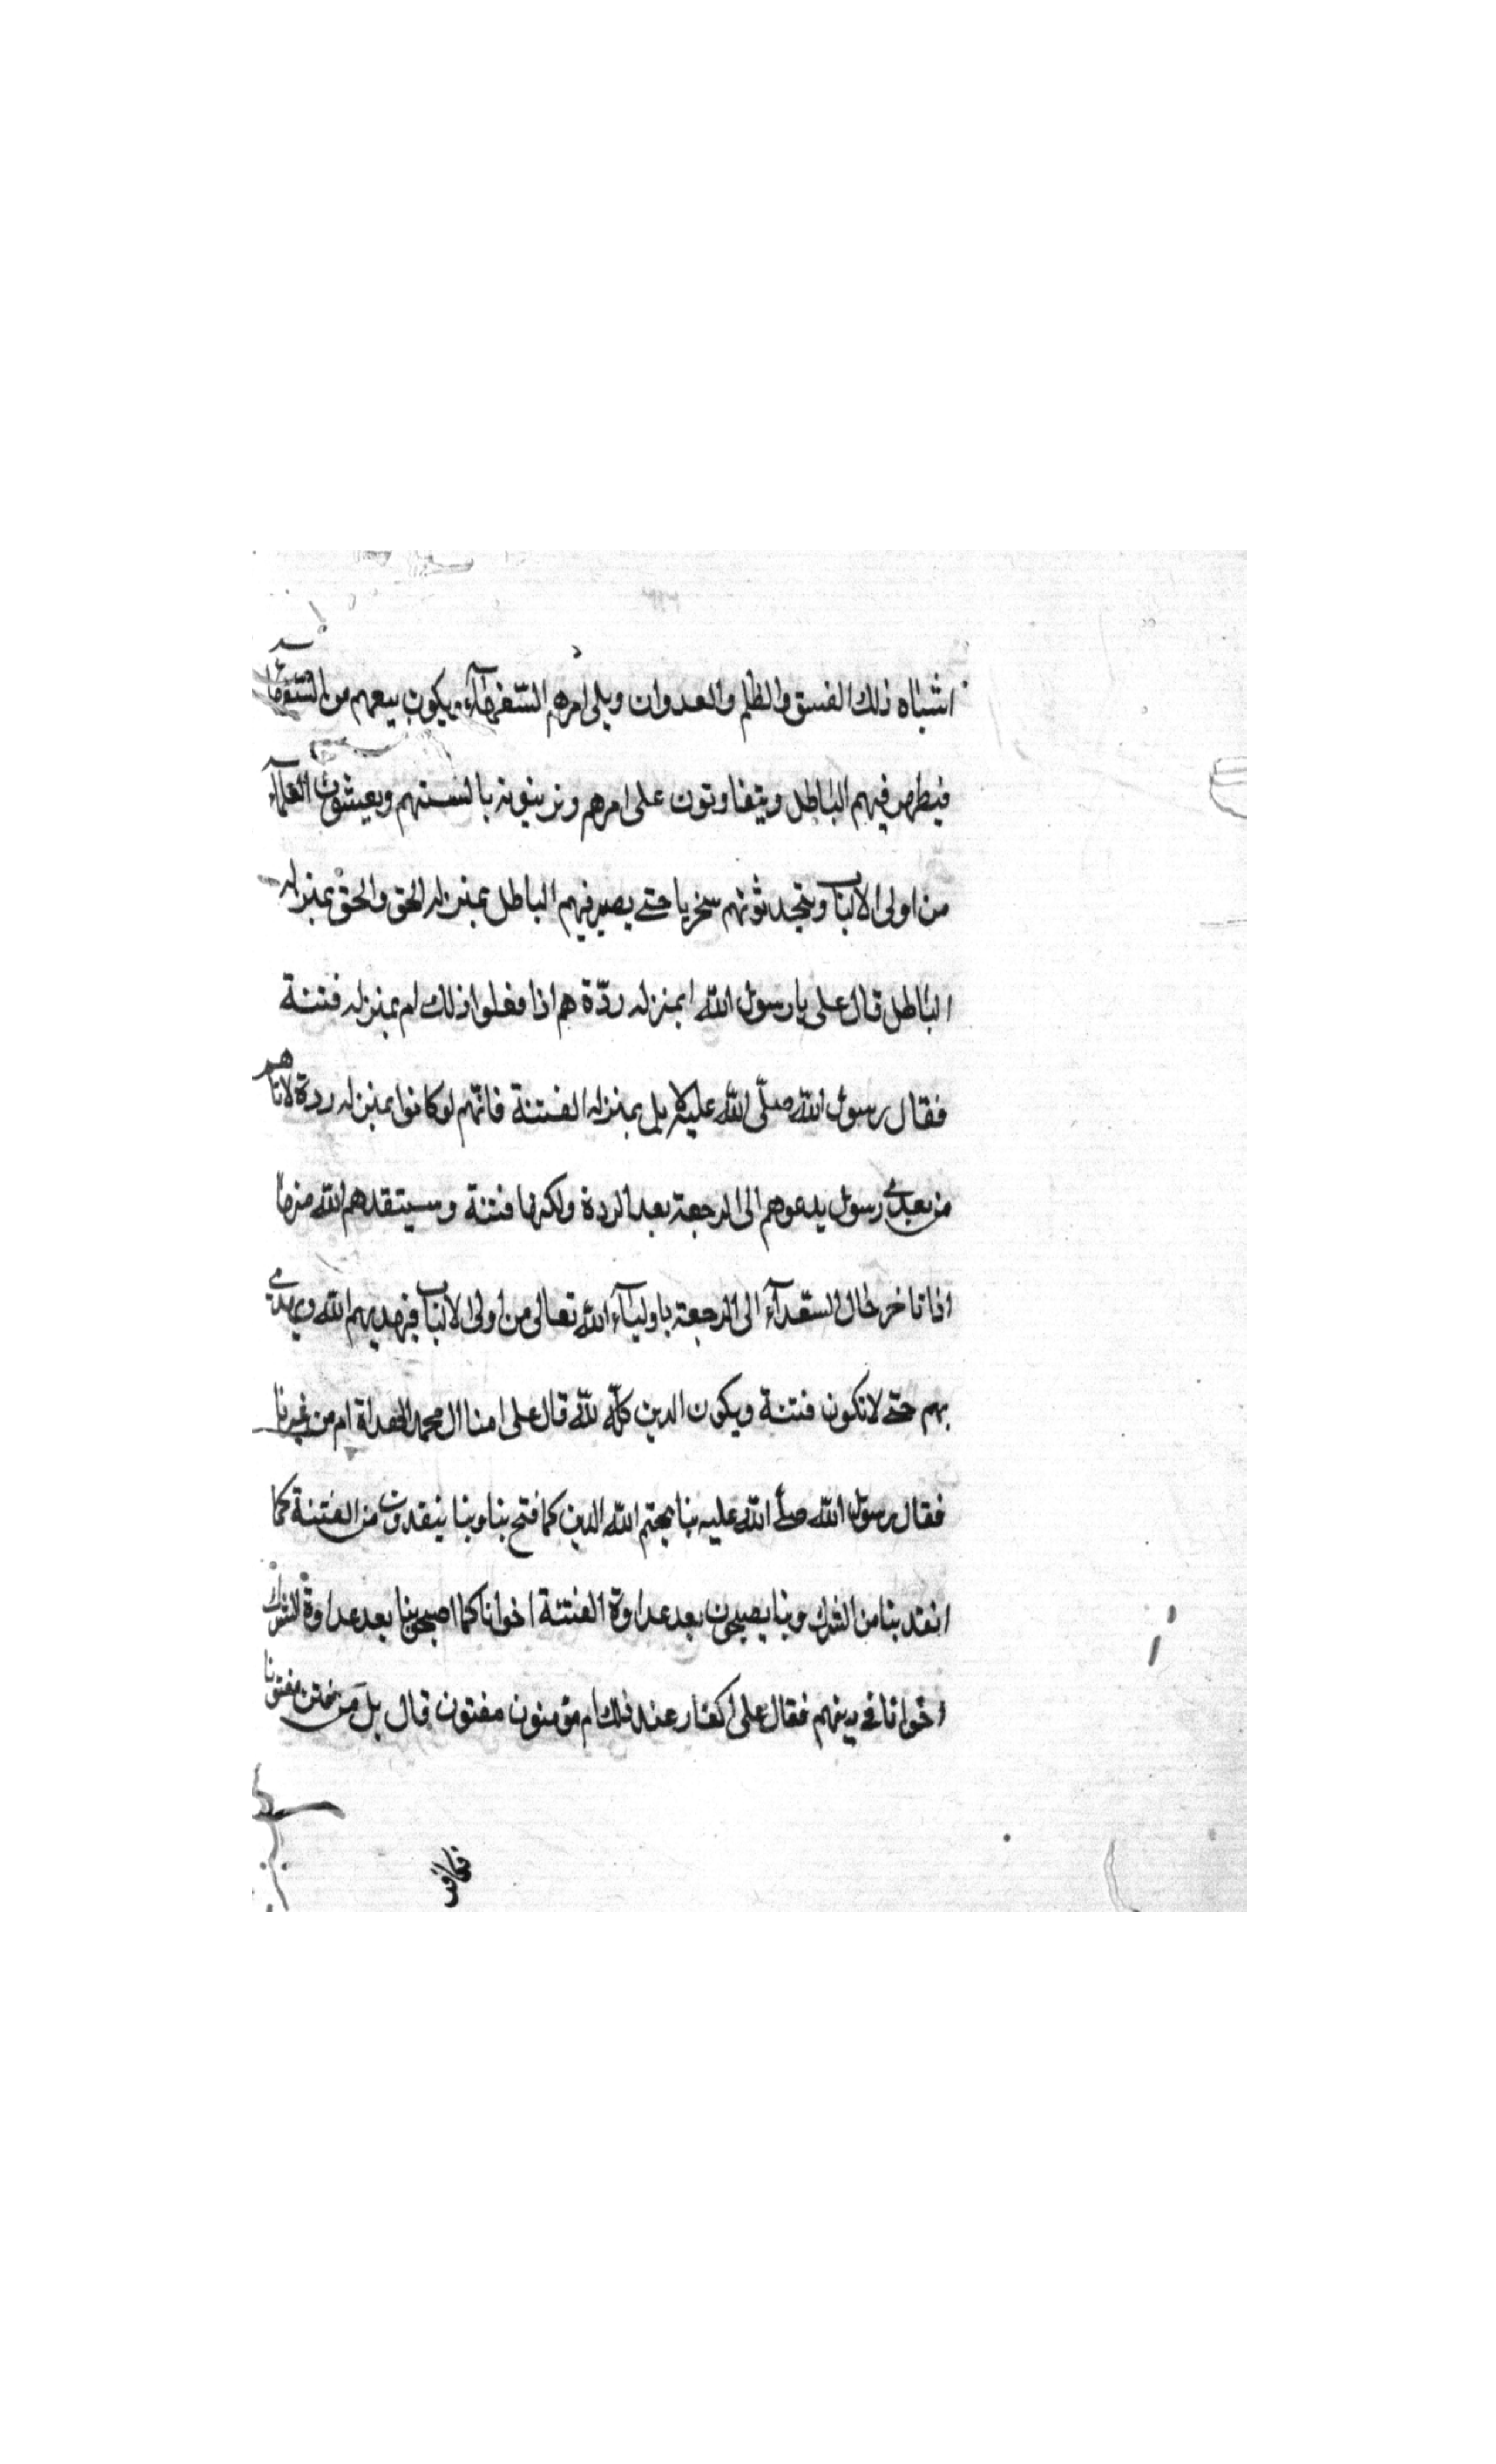 اشباه ذلك الفسق والظلم والعدوان ويلي امرهم السفهاء ويكون بيعهم من السفهاء
فيظهر فيهم الباطل ويتفاوتون على امرهم ونزينونه بالسنتهم ويعيشون العلماء
من اولى الالباب ويتحدثونهم سخريا حتى يصير فيهم الباطل بمنزله الحق والحق بمنزله
الباطل قال على يا رسول الله ابمنزله ردّة هم اذا فعلوا ذلك ام بمنزله فتنة
فقال رسول الله صلّى الله عليه بل بمنزله الفتنة فانّهم لو كانوا بمنزله ردة لاتاهم
من بعدي رسول يدعوهم الى الرجعة بعد الردة ولكنها فتنة وسيتقدهم الله منها
اذا تاخر خال السعدآء الى الرجعة باوليآء الله تعالى من اولى الالباب فيهديهم الله ويهدي
بهم حتى لا تكون فتنة ويكون الدين كلّه للّه قال على امنا ال محمد الهداة ام من غيرنا
فقال رسول الله صلى الله عليه بنا يختم الله الدين كما فتح بنا وبنا ينقذون من الفتنة كما
انقذ بنا من الشرك وبنا يصبحون بعد عداوة الفتنة اخوانا كما اصبحوا بنا بعد عداوة الشرك
اخوانا في دينهم فقال على اكفار عند ذلك ام مؤمنون مفتون قال بل من